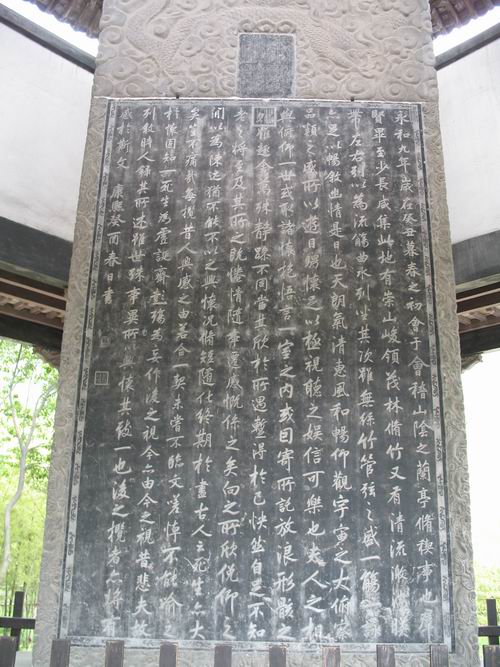 永和九年歲在癸丑暮春之初會于會稽山陰之蘭亭脩稧事也羣
賢畢至少長咸集此地有崇山峻領茂林脩竹又有清流激湍映
帶左右引以為流觴曲水列坐其次雖無絲竹管弦之盛一觴一詠
亦足以暢敘幽情是日也天朗氣清惠風和暢仰觀宇宙之大俯察
品類之盛所以遊目騁懷足以極視聽之娛信可樂也夫人之相
與俯仰一世或取諸懷抱悟言一室之內或因寄所託放浪形骸之
外雖趣舍萬殊靜躁不同當其欣於所遇暫得於己快然自足不知
老之將至及其所之既惓情隨事遷感慨係之矣向之所欣俛仰之
間以為陳迹猶不能不以之興懷況脩短隨化終期於盡古人云死生亦大
矣豈不痛哉每攬昔人興感之由若合一契未嘗不臨文嗟悼不能喻之
於懷固知一死生為虛誕齊彭殤為妄作後之視今亦由今之視昔悲夫故
列敘時人錄其所述雖世殊事異所以興懷其致一也後之攬者亦將有
感於斯文 康熙癸酉春日書